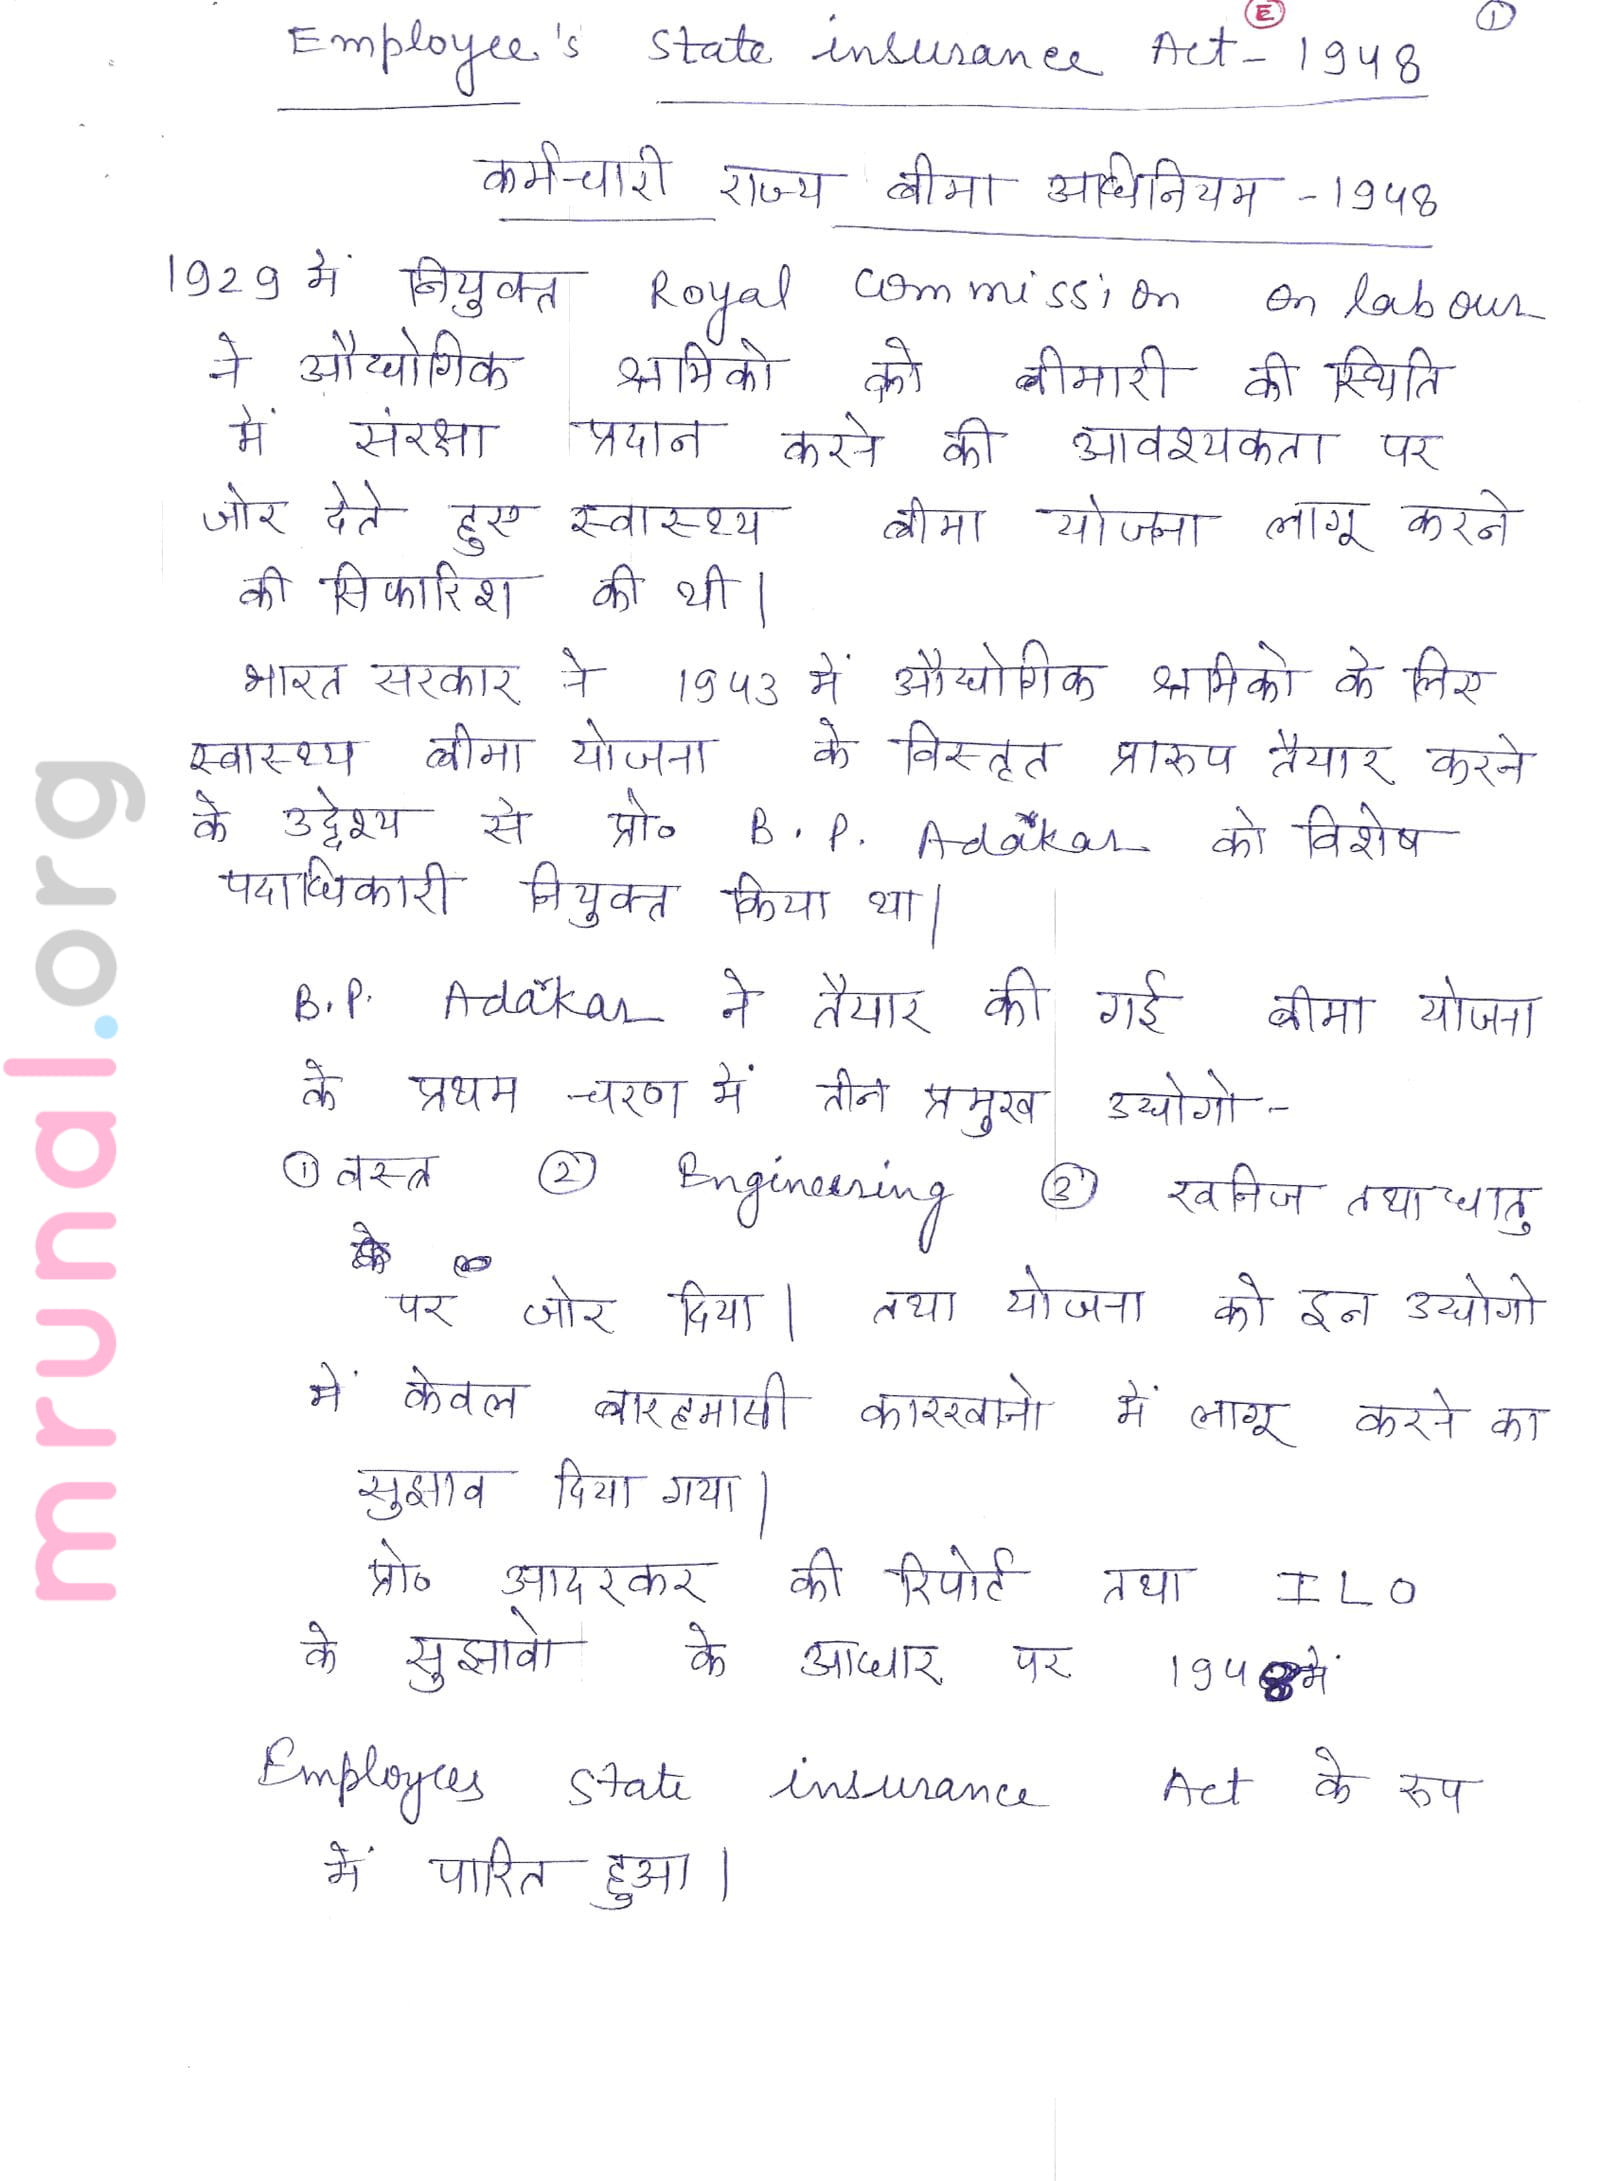 Ⓔ ①
Employee's State insurance Act - 1948
कर्मचारी राज्य बीमा अधिनियम - 1948
1929 में नियुक्त Royal Commission on labour
ने औद्योगिक श्रमिको को बीमारी की स्थिति
में संरक्षा प्रदान करने की आवश्यकता पर
जोर देते हुए स्वास्थ्य बीमा योजना लागू करने
की सिफारिश की थी।
भारत सरकार ने 1943 में औद्योगिक श्रमिको के लिए
स्वास्थ्य बीमा योजना के विस्तृत प्रारुप तैयार करने
के उद्देश्य से प्रो० B. P. Adarkar को विशेष
पदाधिकारी नियुक्त किया था।
B.P. Adarkar ने तैयार की गई बीमा योजना
के प्रथम चरण में तीन प्रमुख उद्योगो -
① वस्त्र ② Engineering ③ खनिज तथा धातु
पर जोर दिया। तथा योजना को इन उद्योगो
में केवल बारहमासी कारखानो में लागू करने का
सुझाव दिया गया।
प्रो० आदरकर की रिपोर्ट तथा ILO
के सुझावो के आधार पर 1948 में
Employees State insurance Act के रुप
में पारित हुआ।
mrunal.org